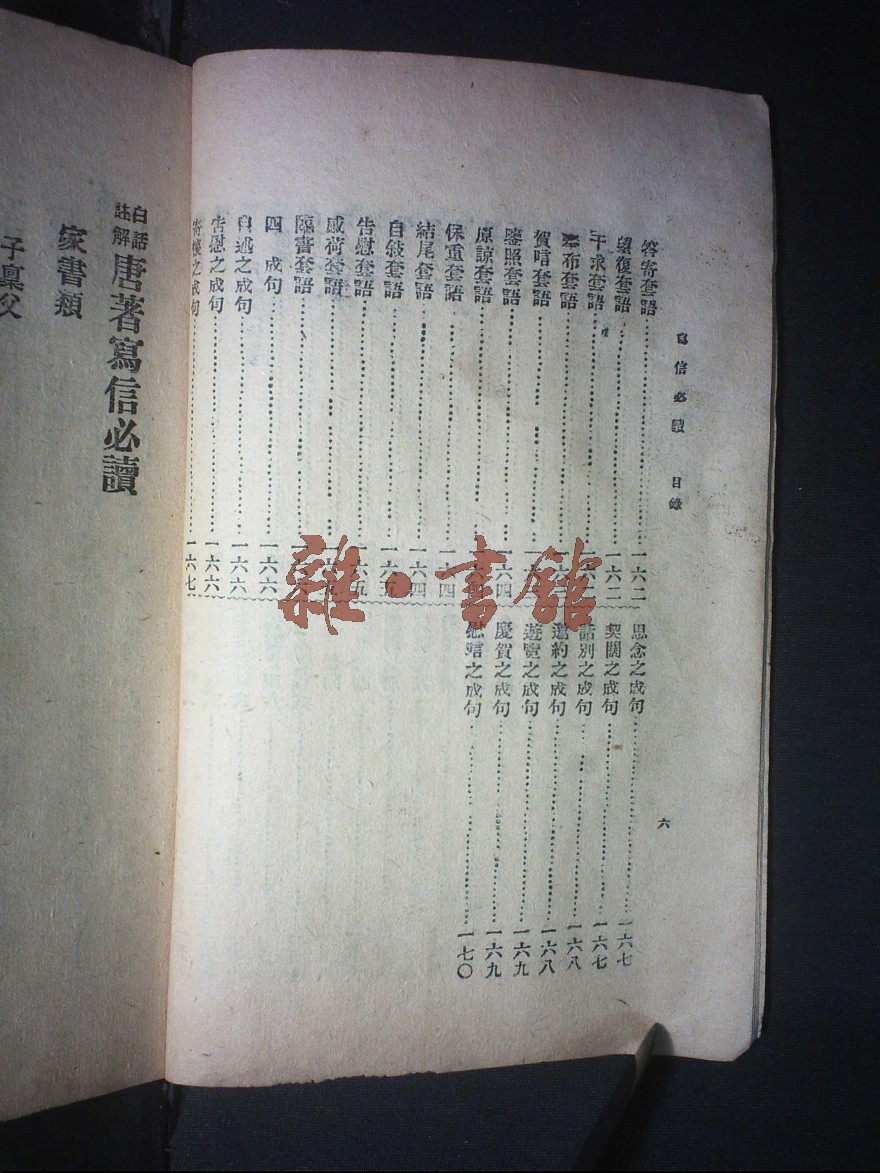 寫信必讀 目錄 六
答寄套語 一六二
望復套語 一六二
干求套語
奉布套語
賀唁套語
鑒照套語 一六四
原諒套語 一六四
保重套語 一六四
結尾套語 一六四
自敍套語 一六五
告慰套語 一六五
感荷套語
臨書套語
四 成句 一六六
自述之成句 一六六
告慰之成句 一六六
之成句 一六七
思念之成句 一六七
契闊之成句 一六七
話別之成句 一六八
邀約之成句 一六八
遊覽之成句 一六九
慶賀之成句 一六九
慰唁之成句 一七〇
白話註解 唐著寫信必讀
家書類
子稟父
雜·書館